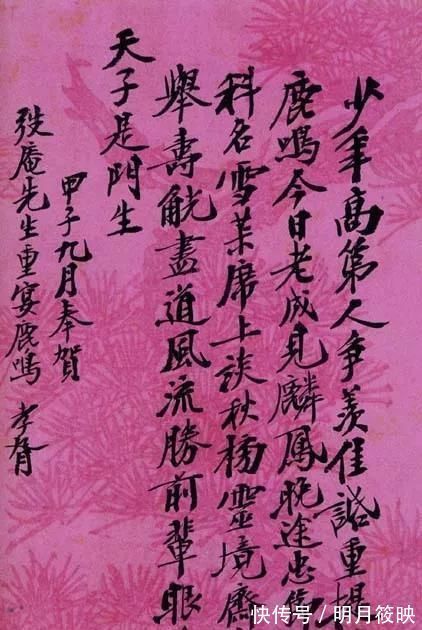 少年高第人争羨佳話重提
鹿鳴今日老成見麟鳳晚途忠
科名雪席上談秋靈境
舉壽觥盡道風流勝前輩眼
天子是門生
甲子九月奉賀
弢庵先生重宴鹿鳴 孝胥
快传号/明月筱映